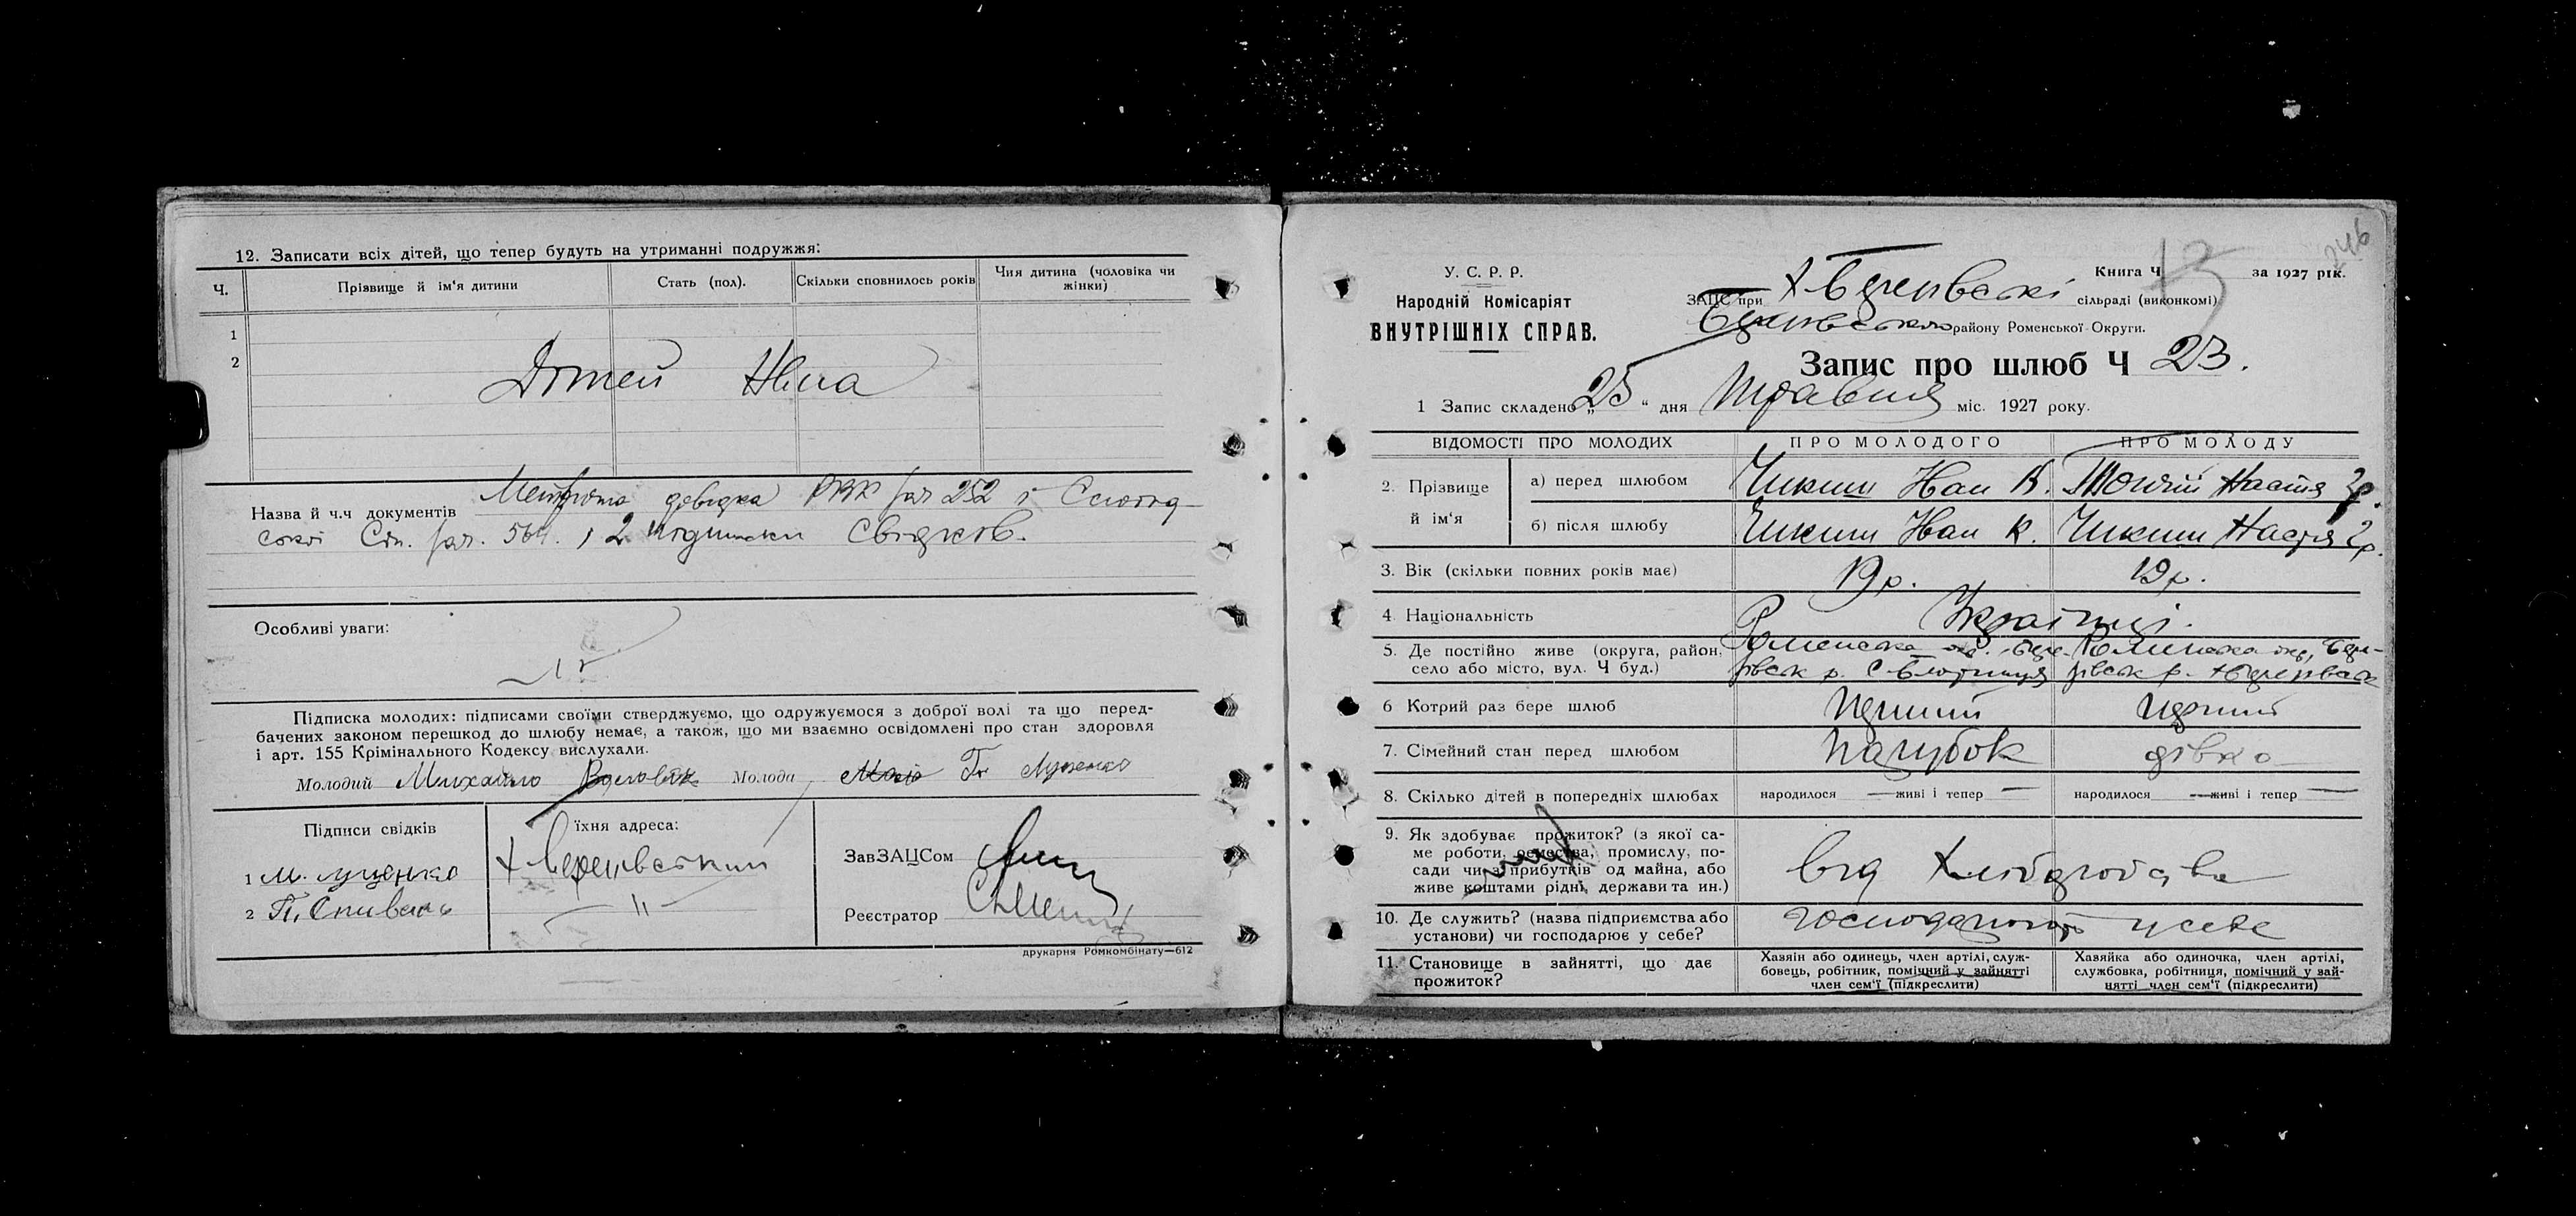 12. Записати всіх дітей, що тепер будуть на утриманні подружжя:
Ч. Прізвище й ім'я дитини Стать (пол). Скільки сповнилось років Чия дитина (чоловіка чи жінки)
1
2
Дітей Нема
Назва й ч.ч документів Метрична довідка РВК за № 252 і
Сіл. рад. 564. і 2 підписки Свідків.
Особливі уваги:
Підписка молодих: підписами своїми стверджуємо, що одружуємося з доброї волі та що перед-
бачених законом перешкод до шлюбу немає, а також, що ми взаємно освідомлені про стан здоровля
і арт. 155 Крімінального Кодексу вислухали.
Молодий Михайло Молода Луценко
Підписи свідків
їхня адреса:
1 М. Луценко
2 П. Співакь
— " —
ЗавЗАЦСом
Реєстратор
друкарня Ромкомбінату—612
246
У. С. Р. Р.
Народній Комісаріят
ВНУТРІШНІХ СПРАВ.
Книга Ч 13 за 1927 рік.
ЗАЦС при сільраді (виконкомі)
району Роменської Округи.
Запис про шлюб Ч 23.
1 Запис складено „25" дня Травня міс. 1927 року.
ВІДОМОСТІ ПРО МОЛОДИХ ПРО МОЛОДОГО ПРО МОЛОДУ
2. Прізвище й ім'я
а) перед шлюбом Чикиш Іван К. Настя Гр.
б) після шлюбу Чикиш Іван К. Чикиш Настя Гр.
3. Вік (скільки повних років має) 19 р. 19 р.
4 Національність Українці.
5. Де постійно живе (округа, район, село або місто, вул. Ч буд.) Роменська ок. Роменська окр,
6 Котрий раз бере шлюб Перший Перший
7. Сімейний стан перед шлюбом Парубок дівка
8. Скілько дітей в попередніх шлюбах народилося — живі і тепер — народилося — живі і тепер —
9. Як здобуває прожиток? (з якої са-
ме роботи, ремества, промислу, по-
сади чи з прибутків од майна, або
живе коштами рідні, держави та ин.)
від Хліборобства
10. Де служить? (назва підприємства або
установи) чи господарює у себе?
господарюють у себе
11. Становище в зайнятті, що дає
прожиток?
Хазяін або одинець, член артілі, служ-
бовець, робітник, помічний у зайнятті
член сем'ї (підкреслити)
Хавяйка або одиночка, член артілі,
службовка, робітниця, помічний у зай-
нятті член сем'ї (підкреслити)